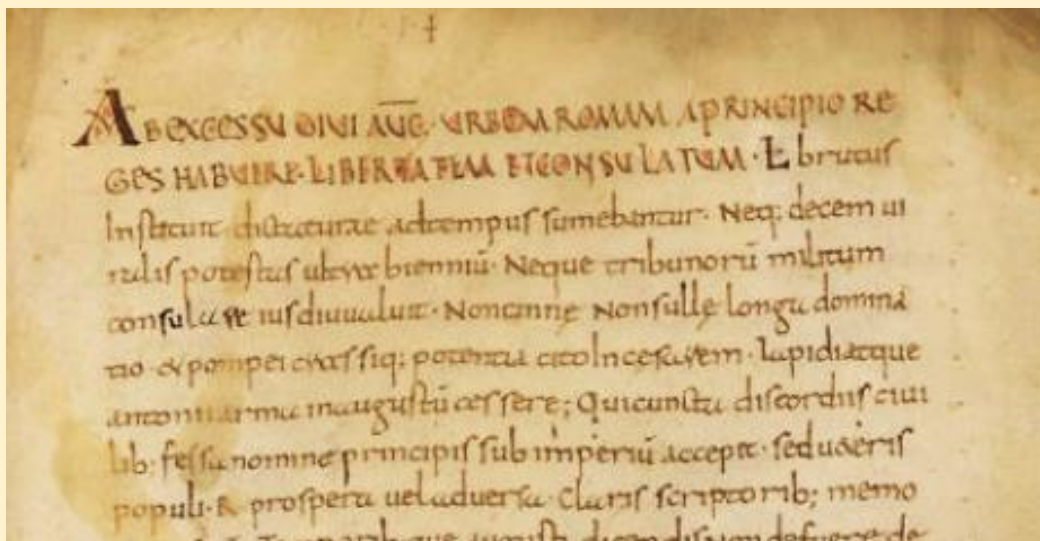 AB EXCESSU DIVI AUG. URBEM ROMAM A PRINCIPIO RE
GES HABUERE. LIBERTATEM ET CONSULATUM. L brutus
Instituit dictaturae adtempus sumebantur. Neq; decem ui
ralis potestas bienniū. Neque tribunorū militum
consulare ius diu ualuit. Non cinne Non sulle longa domina
tio. & pompei crassiq; potentia cito In cesarem. Lapidi atque
antonii arma in augustū cessere; Qui cuncta discordiis ciui
lib; fessa nomine principis sub imperiū accepit. sed ueteris
populi. & prospera uel aduersa. claris scriptorib; memo